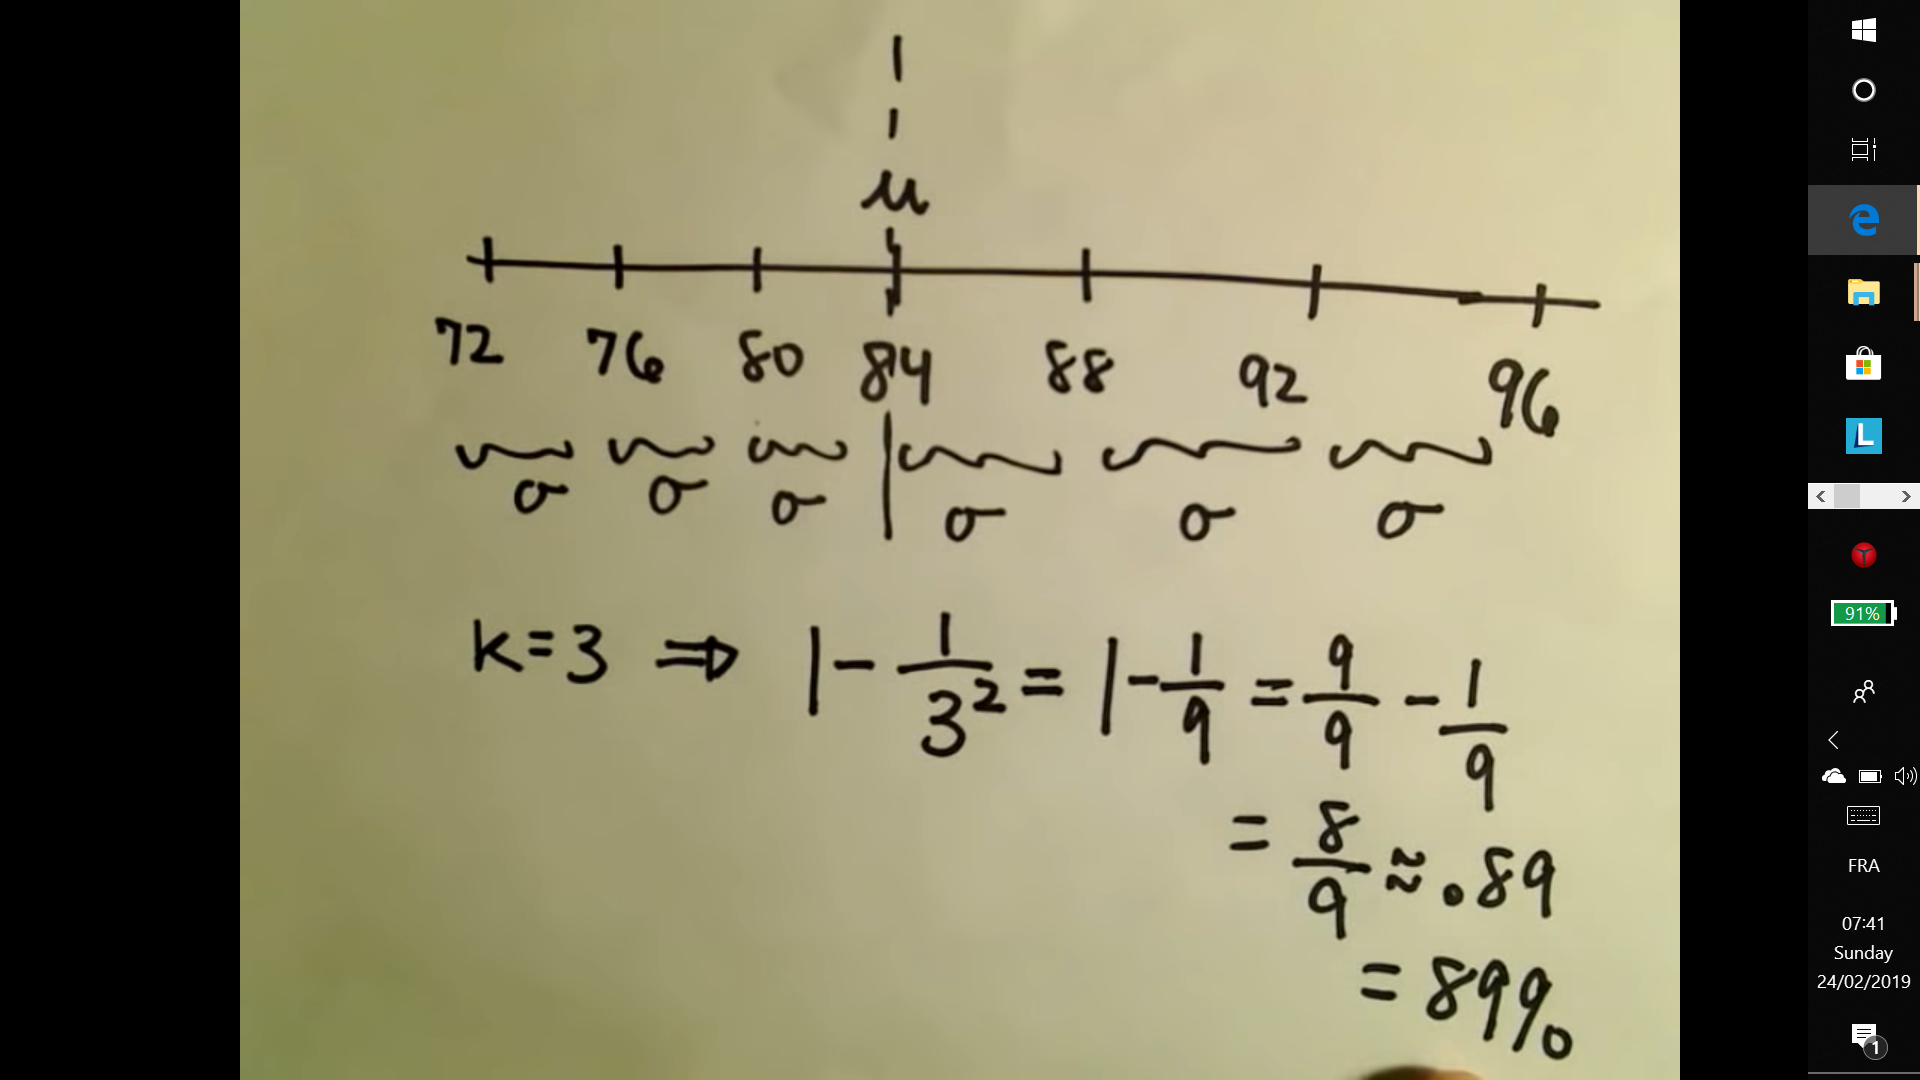 μ
72 76 80 84 88 92 96
σ σ σ σ σ σ
k=3 ⇒ 1 - 1/3² = 1 - 1/9 = 9/9 - 1/9
= 8/9 ≈ .89
= 89%
L
91%
FRA
07:41
Sunday
24/02/2019
1